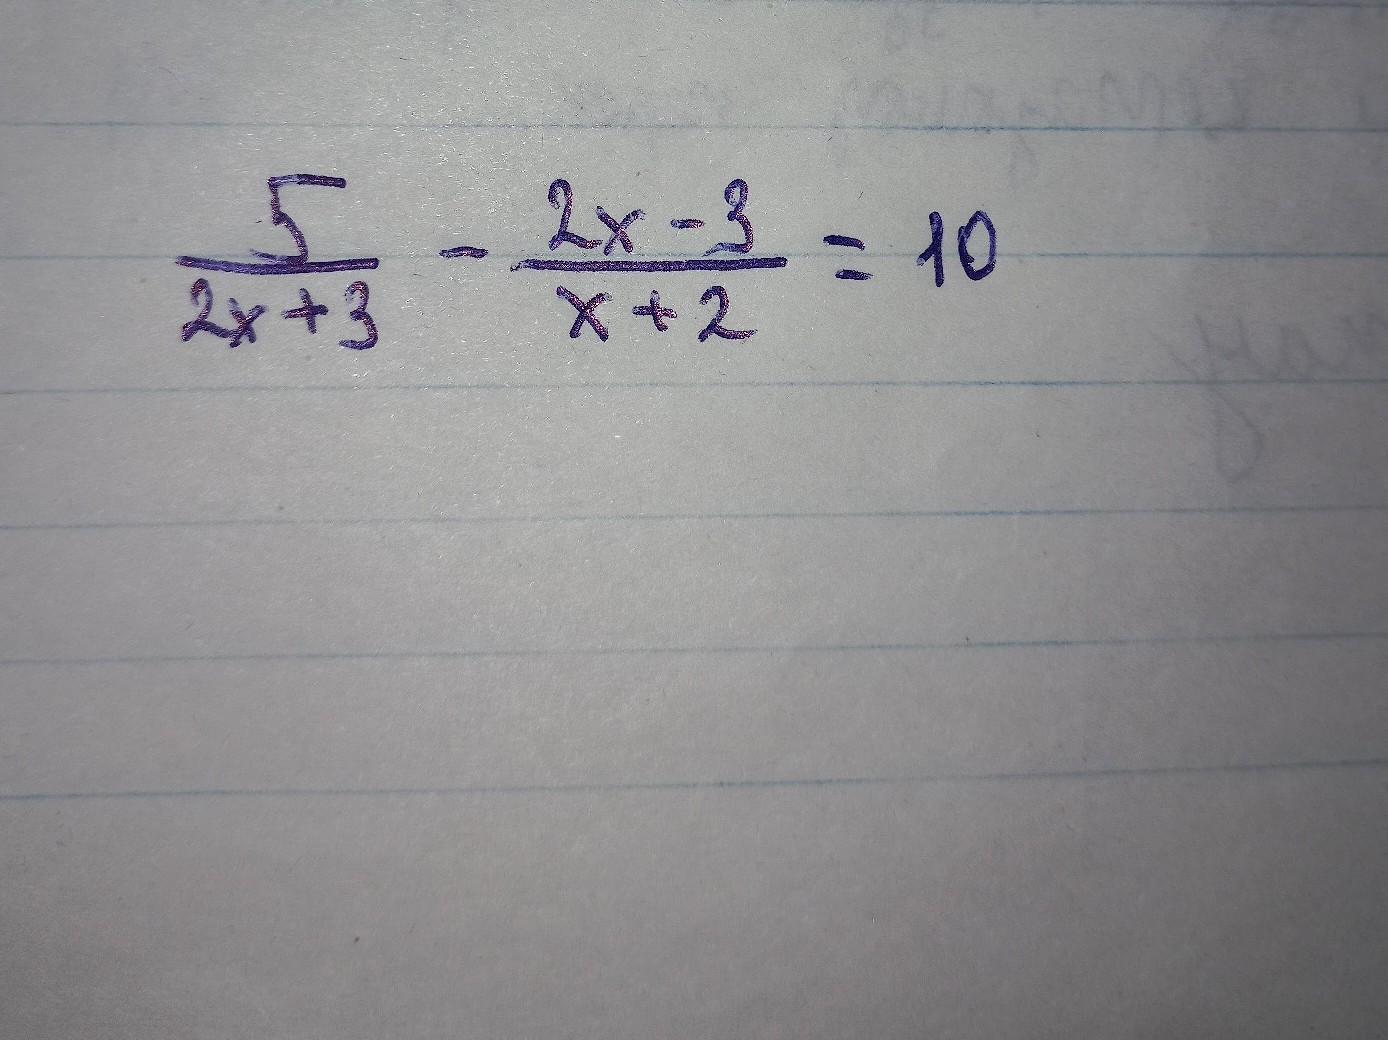 5/(2x+3) - (2x-3)/(x+2) = 10